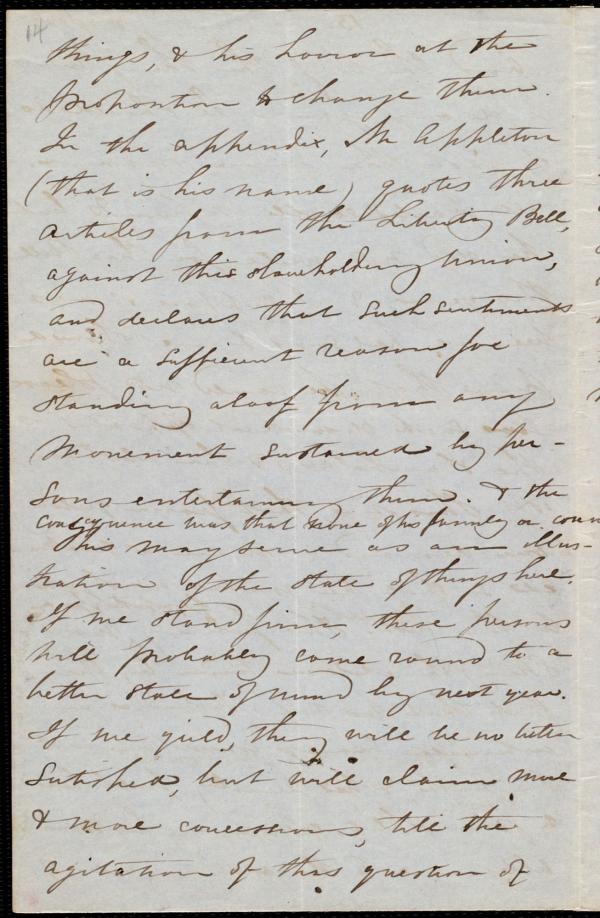 14
things, & his horror at the
proposition to change them.
In the appendix, Mr Appleton
(that is his name) quotes three
articles from the Liberty Bell,
against this slaveholding Union,
and declares that such sentiments
are a sufficient reason for
standing aloof from any
movement sustained by per-
sons entertaining them. & the
consequence was that none of his family or
This may serve as an illus-
tration of the state of things here.
If we stand firm, these persons
will probably come round to a
better state of mind by next year.
If we yield, they will be no better
satisfied, but will claim more
& more concessions, till the
agitation of this question of